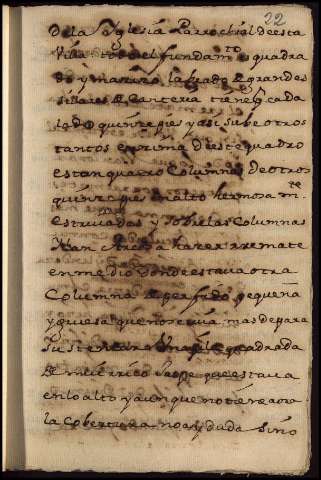 22
de la Yglesia Parrochial de esta
Villa todo el fundamto es quadra
do y masizo labrado de grandes
sillares de canteria tiene cada
lado quinze pies y asi sube otros
tantos en çima deeste quadro
estan quatro Columnas de otros
quinze pies en alto hermosamte
estriadas y sobre las Columnas
hazer rremate
en medio donde estava otra
Columna de perfido pequeña
y gruesa que no servia mas de para
sustentar una pila quadrada
de muy rrico Jaspe que estava
en lo alto y aunque no tiene aora
la cobertura no ay duda sino